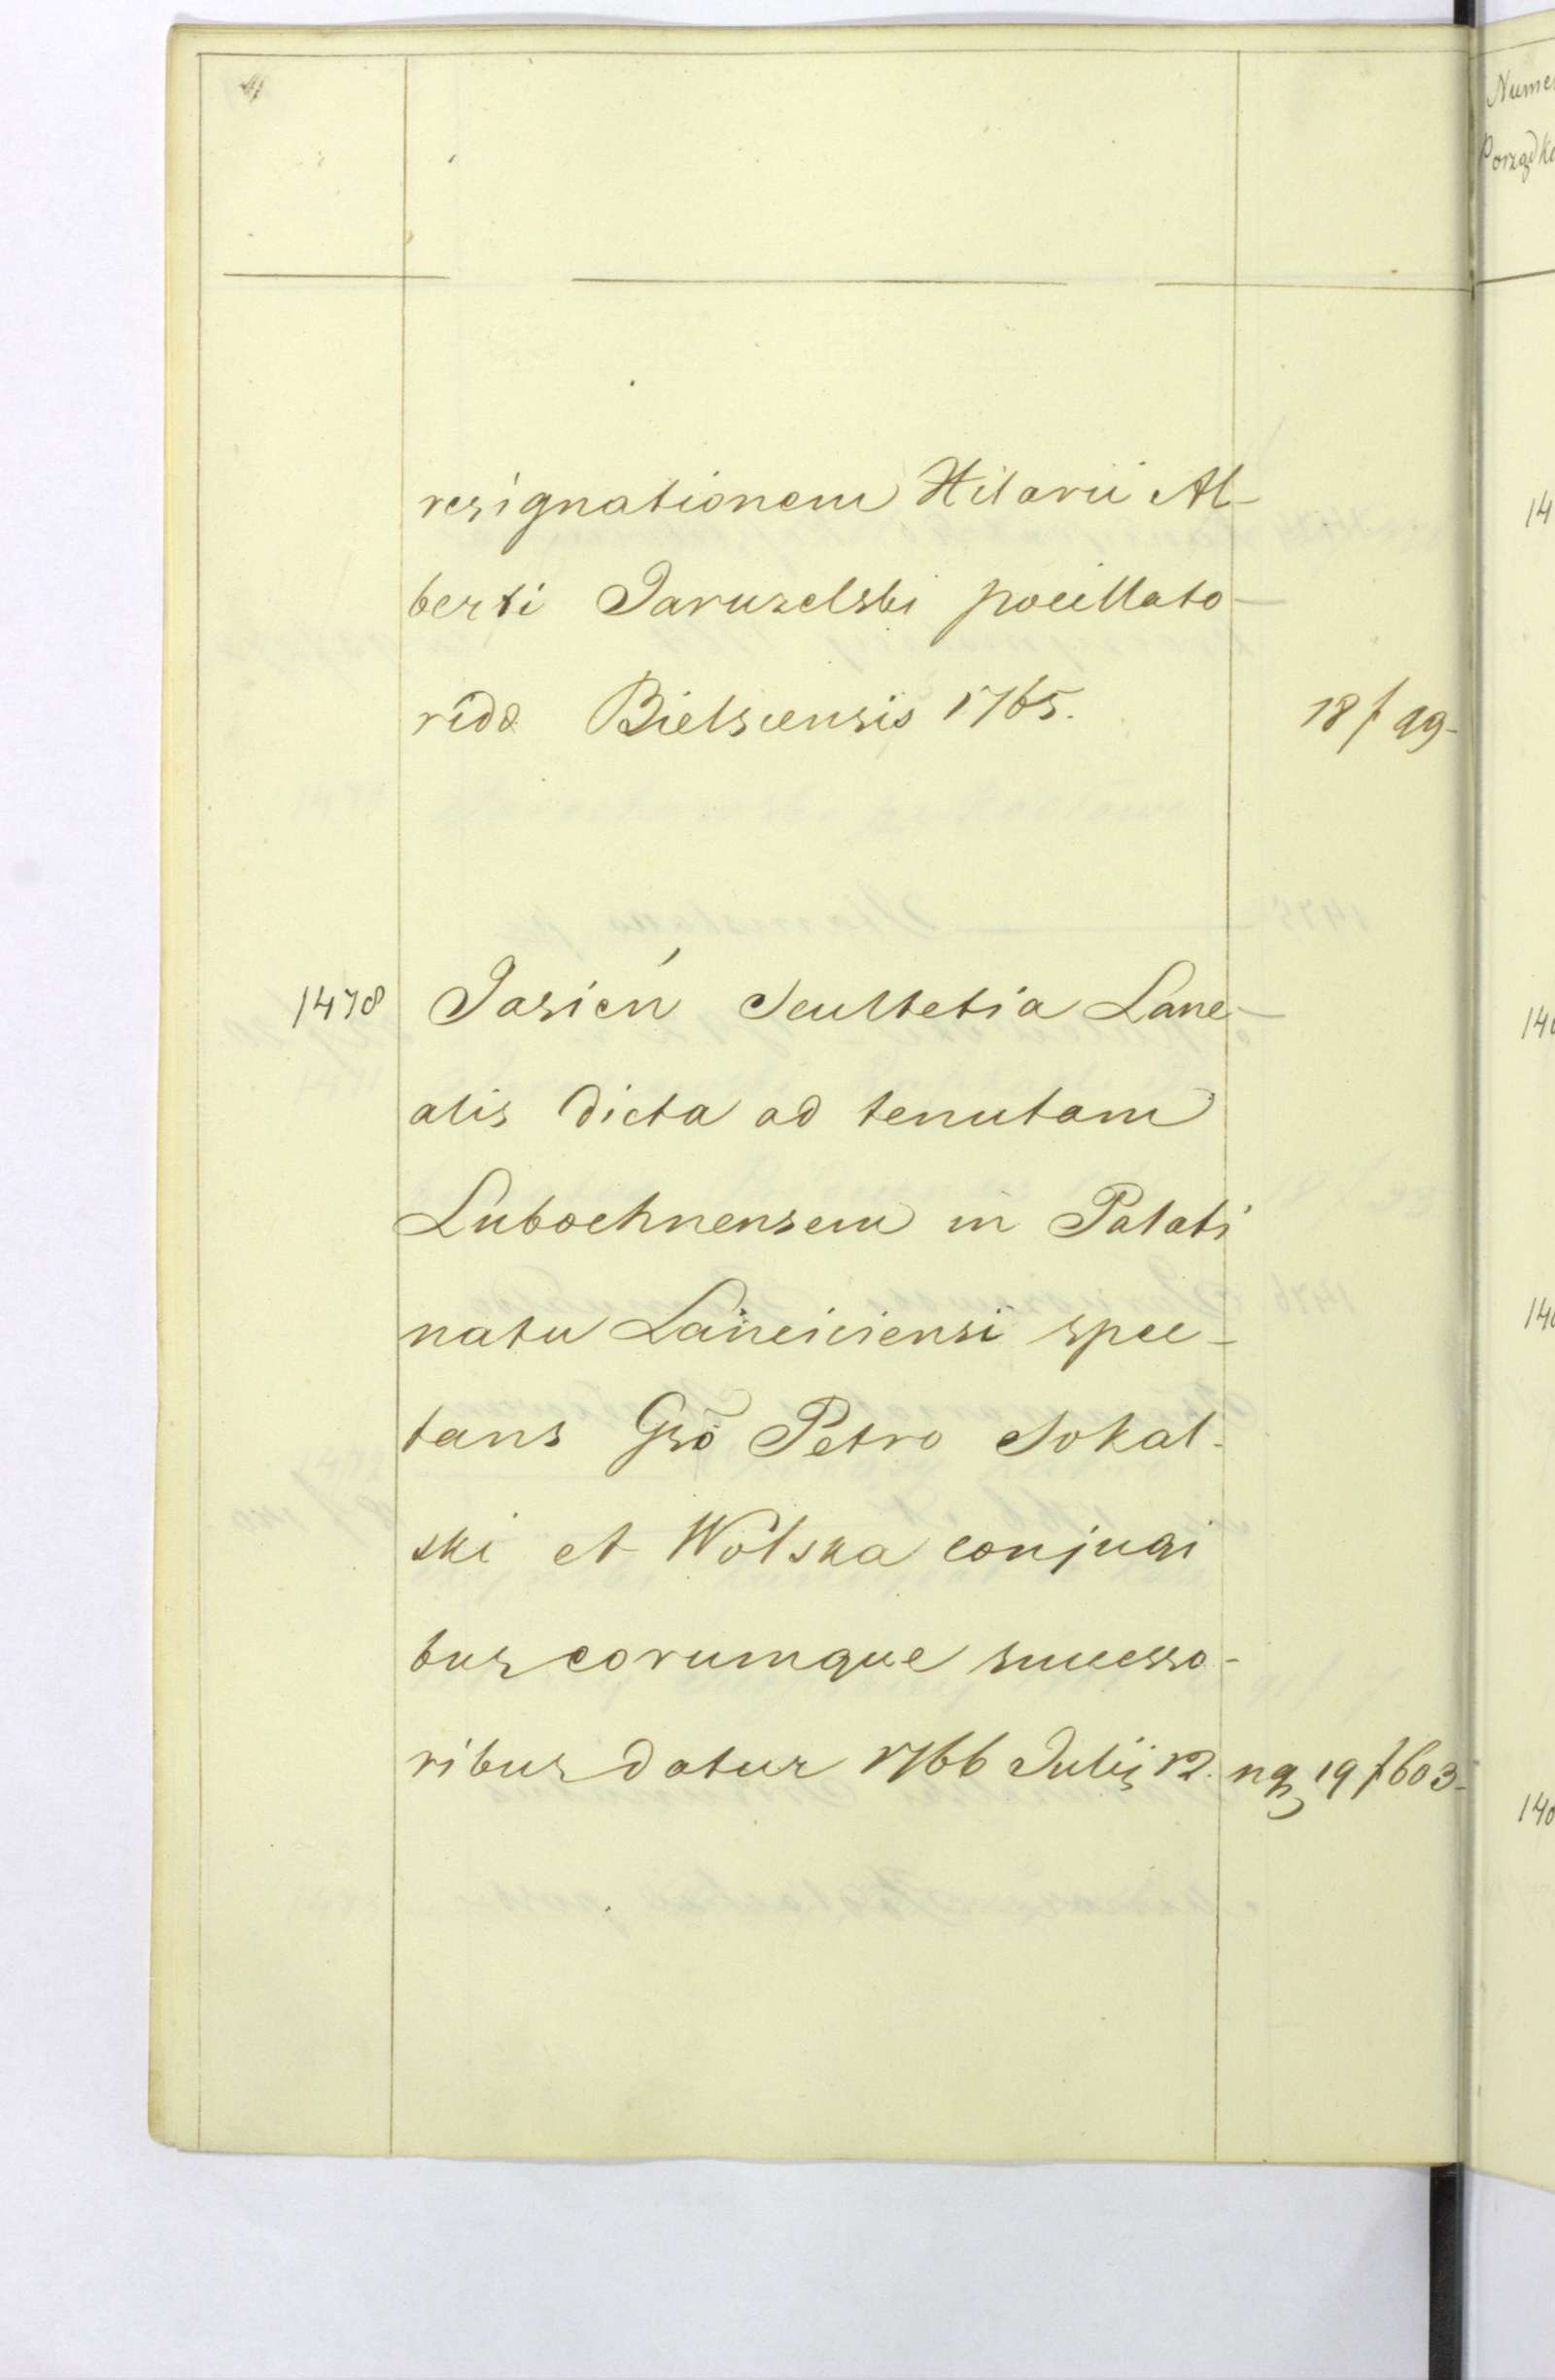 resignationem Hilarii Al-
berti Jaruzelski pocillato-
rida Bielscensis 1765. 18 f 99-
1478 Jasień Scultetia Lane-
alis dicta ad tenutam
Lubochnensem in Palati
natu Lanciciensi spec-
tans Gsō Petro Sokal-
ski et Wolska conjugi
bus eorumque successo-
ribus datur 1766 Julij 12. nq 19 f 603-
Numer
Porządko
14